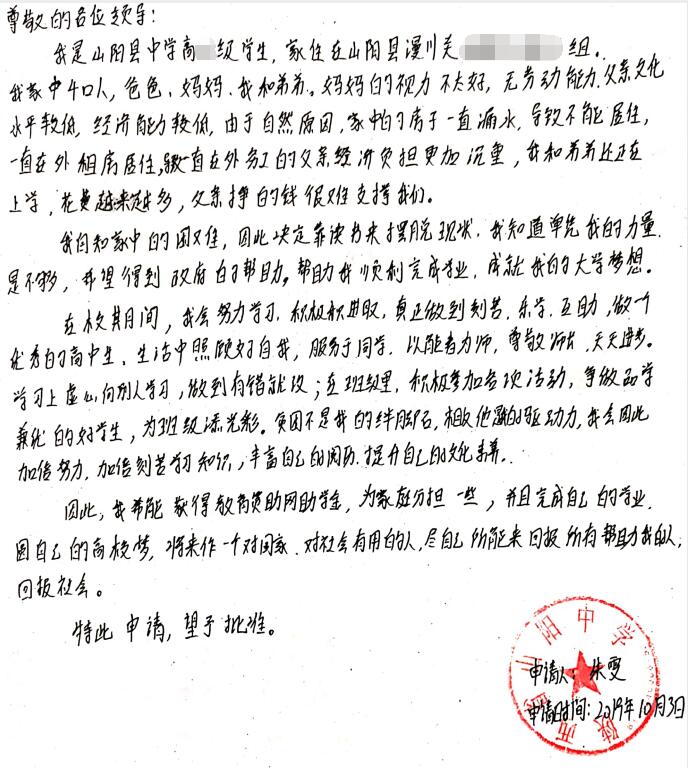 尊敬的各位领导:
我是山阳县中学高 级学生，家住在山阳县漫川关 组。
我家中4口人，爸爸、妈妈、我和弟弟。妈妈的视力不太好，无劳动能力.父亲文化
水平较低，经济能力较低，由于自然原因，家中的房子一直漏水，导致不能居住，
一直在外租房居住，一直在外务工的父亲经济负担更加沉重，我和弟弟还正在
上学，花费越来越多，父亲挣的钱很难支撑我们。
我自知家中的困难，因此决定靠读书来摆脱现状.我知道单凭我的力量
是不够，希望得到政府的帮助。帮助我顺利完成学业，成就我的大学梦想。
在校其间，我会努力学习.积极积进取，真正做到刻苦.乐学.互助，做一个
优秀的高中生、生活中照顾好自我，服务于同学.以能者为师，尊敬师长，天天进步。
学习上虚心向别人学习，做到有错就改；在班级里，积极参加各项活动，争做品学
兼优的好学生，为班级添光彩。贫困不是我的绊脚石，相反他是我的驱动力，我会因此
加倍努力.加倍刻苦学习知识，丰富自己的阅历.提升自己的文化素养.
因此，我希能获得教育资助网助学金，为家庭分担一些，并且完成自己的学业.
圆自己的高校梦，将来作一个对国家.对社会有用的人，尽自己所能来回报所有帮助我的人，
回报社会。
特此申请，望予批准。
陕西省山阳中学
申请人：朱雯
申请时间：2019年10月3日